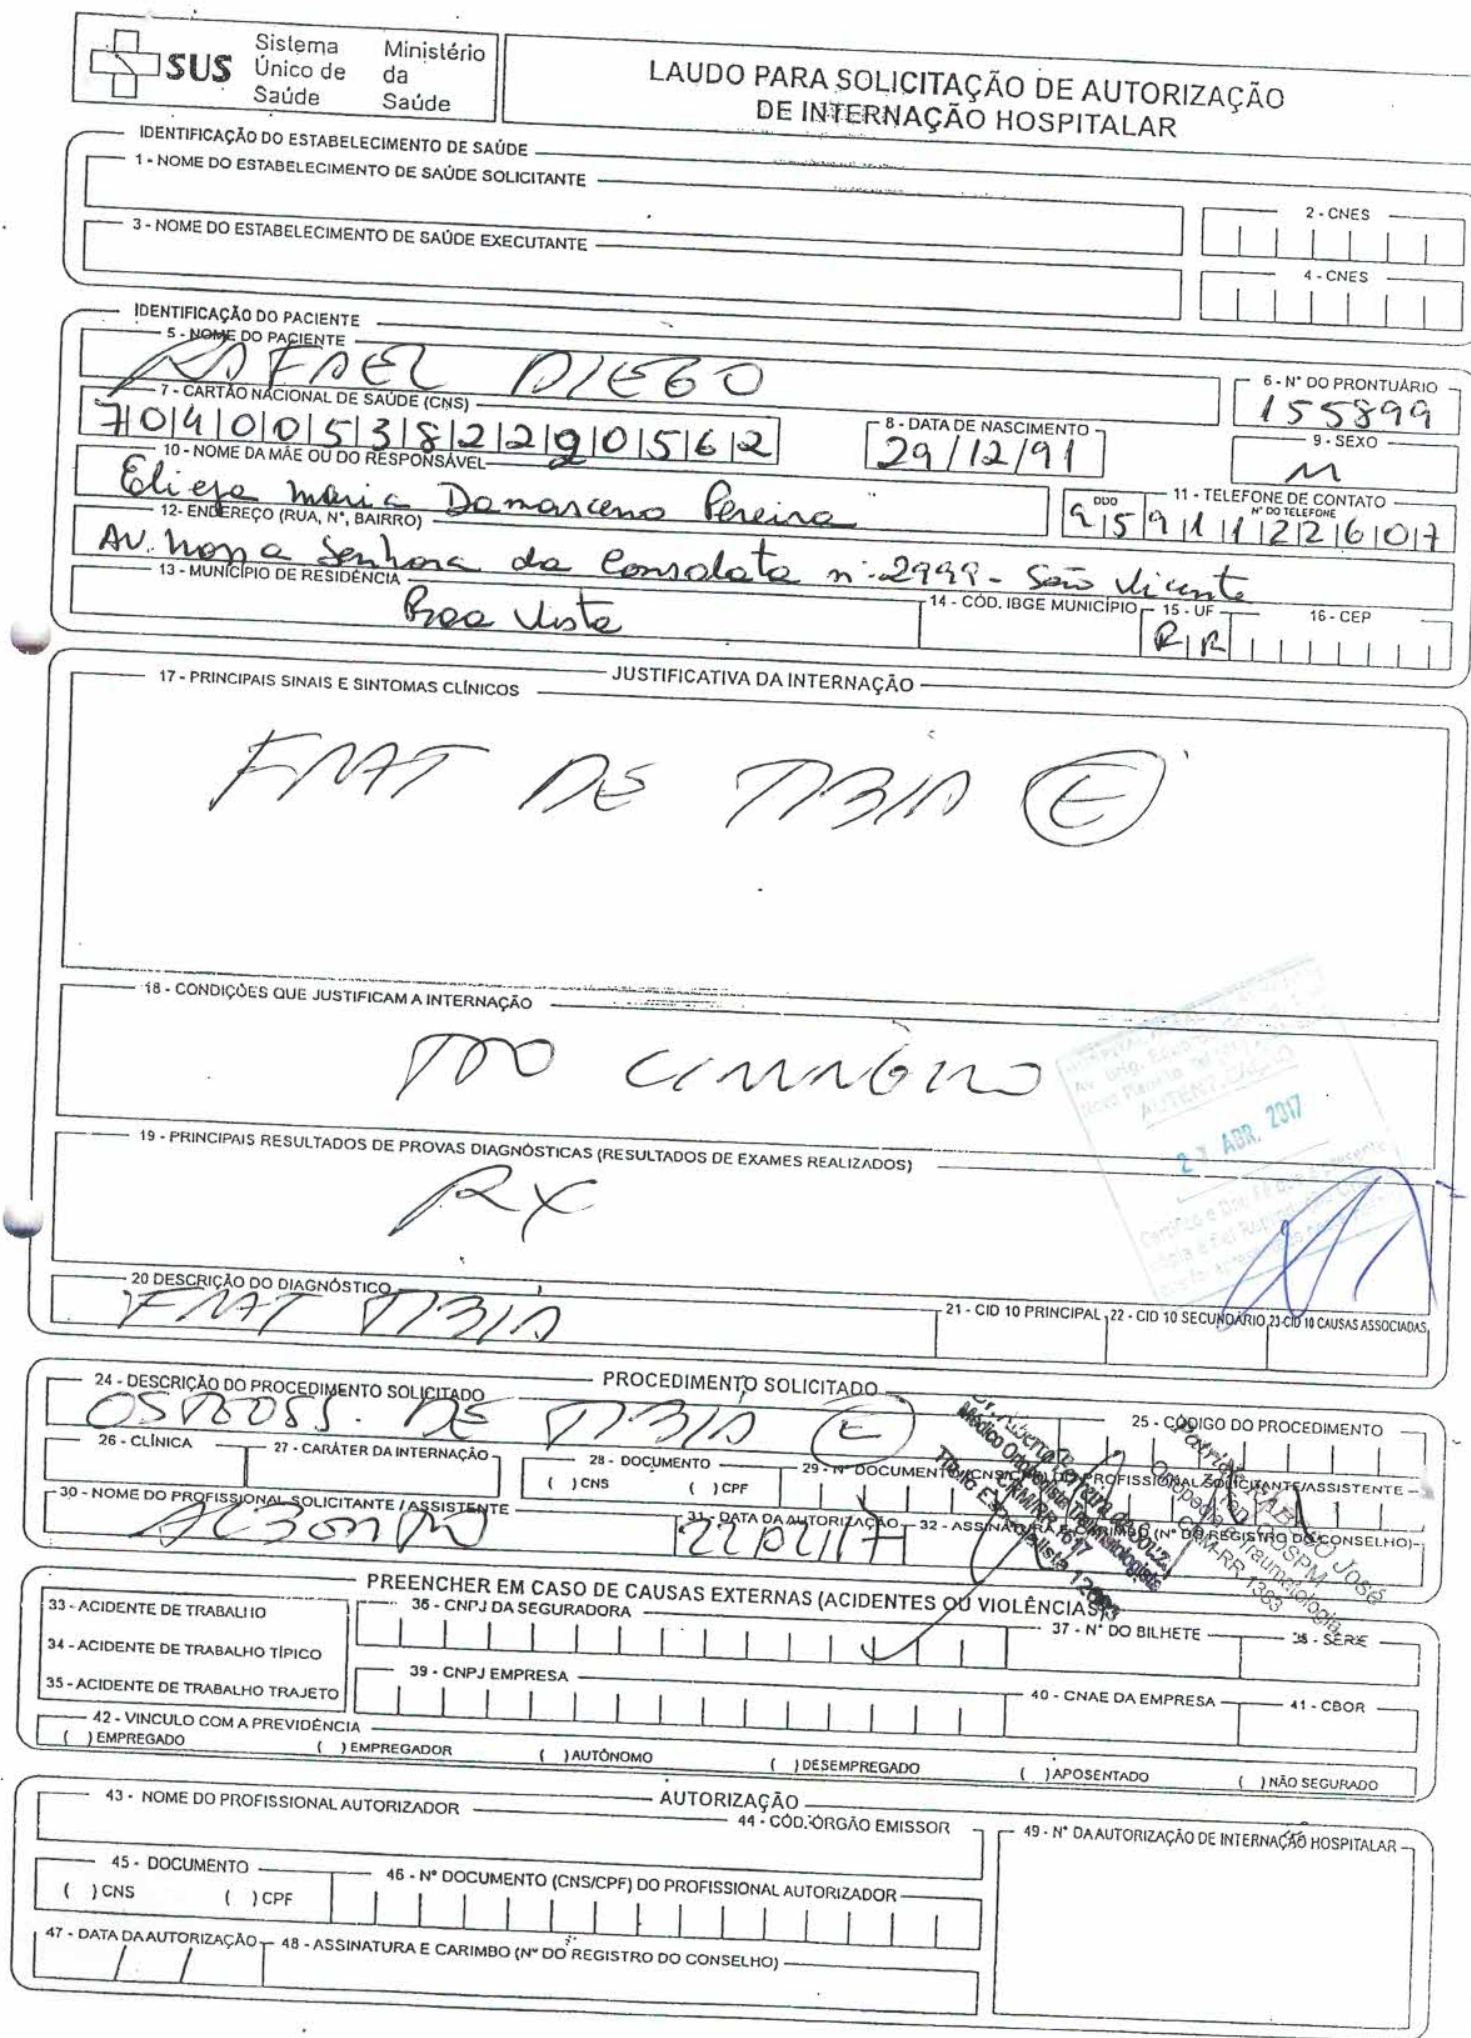 SUS Sistema Único de Saúde Ministério da Saúde
LAUDO PARA SOLICITAÇÃO DE AUTORIZAÇÃO
DE INTERNAÇÃO HOSPITALAR
IDENTIFICAÇÃO DO ESTABELECIMENTO DE SAÚDE
1 - NOME DO ESTABELECIMENTO DE SAÚDE SOLICITANTE
2 - CNES
3 - NOME DO ESTABELECIMENTO DE SAÚDE EXECUTANTE
4 - CNES
IDENTIFICAÇÃO DO PACIENTE
5 - NOME DO PACIENTE
RAFAEL DIEGO
6 - N° DO PRONTUÁRIO
155899
7 - CARTÃO NACIONAL DE SAÚDE (CNS)
704005382290562
8 - DATA DE NASCIMENTO
29/12/91
9 - SEXO
M
10 - NOME DA MÃE OU DO RESPONSÁVEL
Maria Damasceno Pereira
11 - TELEFONE DE CONTATO
DDD N° DO TELEFONE
95 91122607
12- ENDEREÇO (RUA, N°, BAIRRO)
Av. Nossa Senhora da Consolata n. 2999 - São Vicente
13 - MUNICÍPIO DE RESIDÊNCIA
Boa Vista
14 - CÓD. IBGE MUNICÍPIO
15 - UF
RR
16 - CEP
JUSTIFICATIVA DA INTERNAÇÃO
17 - PRINCIPAIS SINAIS E SINTOMAS CLÍNICOS
FRAT DE TIBIA (E)
18 - CONDIÇÕES QUE JUSTIFICAM A INTERNAÇÃO
TTO CIRURGICO
AUTENTICAÇÃO
ABR. 2017
19 - PRINCIPAIS RESULTADOS DE PROVAS DIAGNÓSTICAS (RESULTADOS DE EXAMES REALIZADOS)
RX
20 DESCRIÇÃO DO DIAGNÓSTICO
FRAT TIBIA
21 - CID 10 PRINCIPAL
22 - CID 10 SECUNDÁRIO
23-CID 10 CAUSAS ASSOCIADAS
PROCEDIMENTO SOLICITADO
24 - DESCRIÇÃO DO PROCEDIMENTO SOLICITADO
DE TIBIA (E)
25 - CÓDIGO DO PROCEDIMENTO
26 - CLÍNICA
27 - CARÁTER DA INTERNAÇÃO
28 - DOCUMENTO
( ) CNS ( ) CPF
29 - N° DOCUMENTO (CNS/CPF) DO PROFISSIONAL SOLICITANTE/ASSISTENTE
30 - NOME DO PROFISSIONAL SOLICITANTE / ASSISTENTE
31 - DATA DA AUTORIZAÇÃO
32 - ASSINATURA E CARIMBO (N° DO REGISTRO DO CONSELHO)
Médico Ortopedista Traumatologista
CRM/RR 1617
Ortopedia e Traumatologia
CRM-RR 1383
PREENCHER EM CASO DE CAUSAS EXTERNAS (ACIDENTES OU VIOLÊNCIAS)
33 - ACIDENTE DE TRABALHO
34 - ACIDENTE DE TRABALHO TÍPICO
35 - ACIDENTE DE TRABALHO TRAJETO
36 - CNPJ DA SEGURADORA
37 - N° DO BILHETE
38 - SÉRIE
39 - CNPJ EMPRESA
40 - CNAE DA EMPRESA
41 - CBOR
42 - VINCULO COM A PREVIDÊNCIA
( ) EMPREGADO ( ) EMPREGADOR ( ) AUTÔNOMO ( ) DESEMPREGADO ( ) APOSENTADO ( ) NÃO SEGURADO
AUTORIZAÇÃO
43 - NOME DO PROFISSIONAL AUTORIZADOR
44 - CÓD. ÓRGÃO EMISSOR
49 - N° DA AUTORIZAÇÃO DE INTERNAÇÃO HOSPITALAR
45 - DOCUMENTO
( ) CNS ( ) CPF
46 - Nº DOCUMENTO (CNS/CPF) DO PROFISSIONAL AUTORIZADOR
47 - DATA DA AUTORIZAÇÃO
48 - ASSINATURA E CARIMBO (N° DO REGISTRO DO CONSELHO)